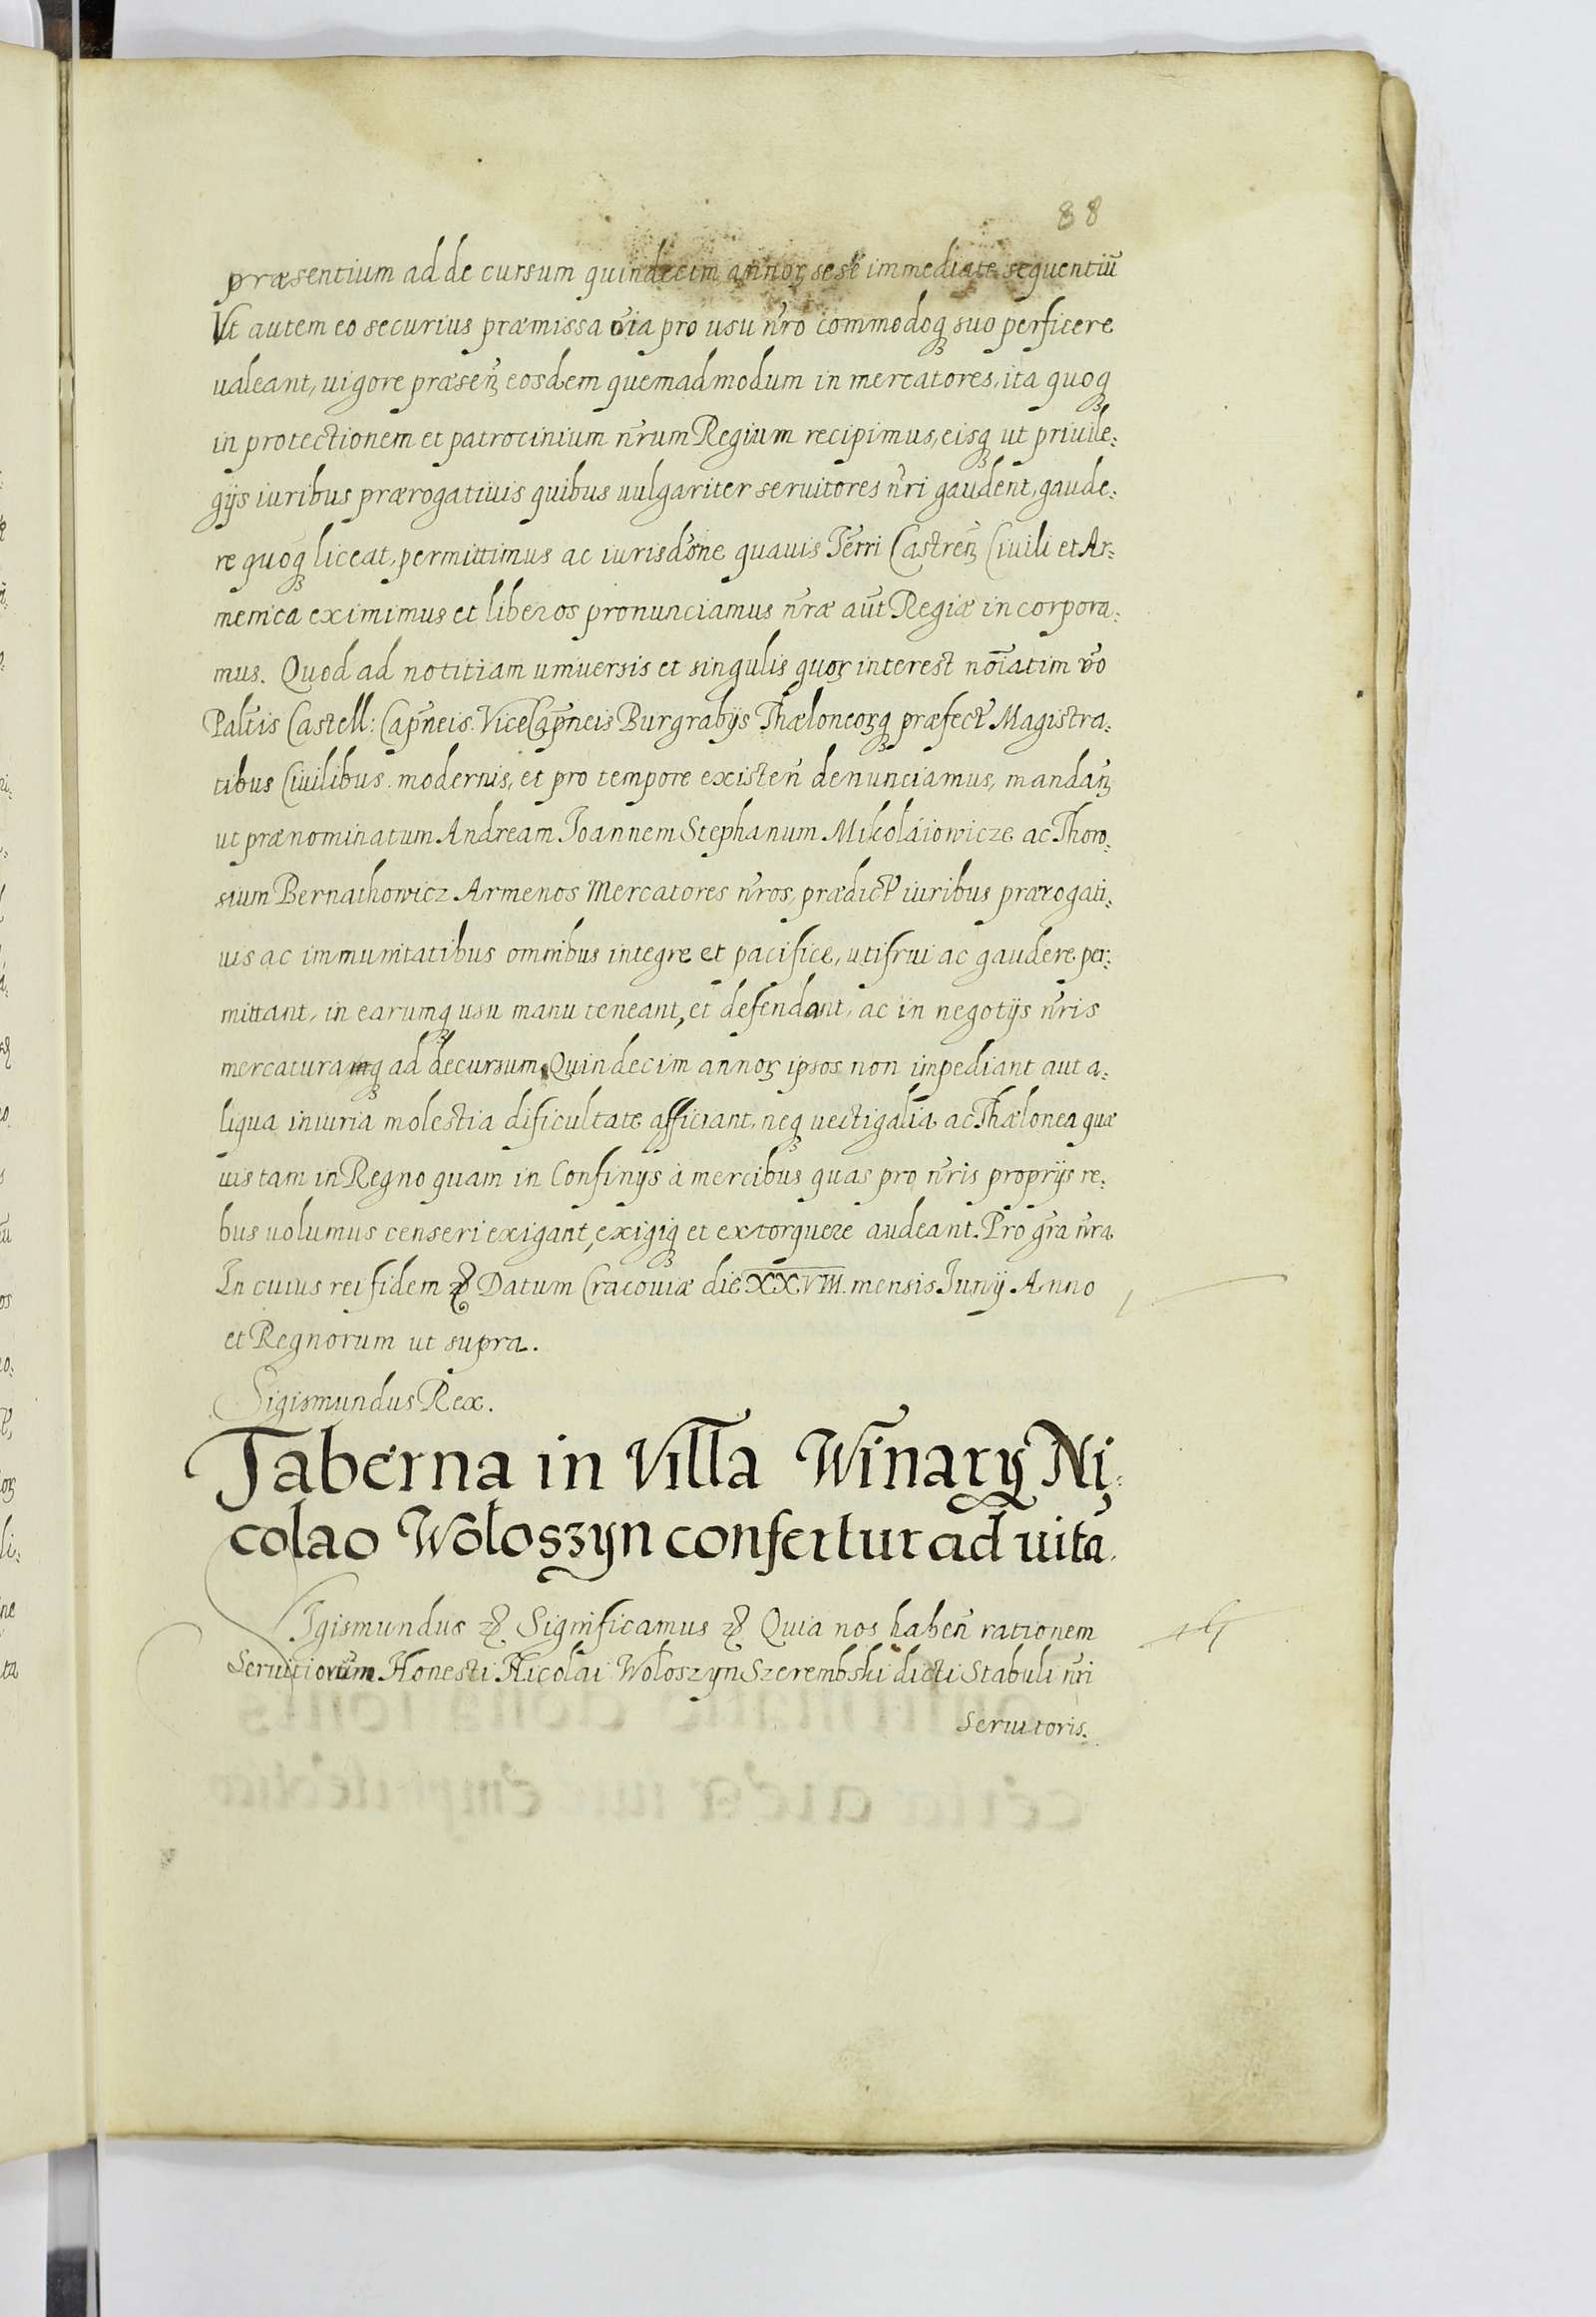 88
præsentium ad de cursum quindecim annoꝝ sese immediate sequentiũ
Vt autem eo securius præmissa oı̃a pro usu nr̃o commodoqꝫ suo perficere
ualeant, uigore præseñ eosdem quemadmodum in mercatores, ita quoqꝫ
in protectionem et patrocinium nr̃um Regium recipimus, eisqꝫ ut priuile:
gijs iuribus prærogatiuis quibus uulgariter seruitores nr̃i gaudent, gaude:
re quoqꝫ liceat, permittimus ac iurisdõne quauis Terri Castreñ Ciuili et Ar:
menica eximimus et liberos pronunciamus nr̃æ aũt Regiæ incorpora:
mus. Quod ad notitiam uniuersis et singulis quoꝝ interest noı̃atim ṽo
Paltĩs Castell: Cap̃neis. ViceCap̃neis Burgrabijs Thæloneoꝝqꝫ præfect̃ Magistra:
tibus Ciuilibus modernis, et pro tempore existeñ denunciamus, mandañ
ut prænominatum Andream Ioannem Stephanum Mikoláiowicze ac Thoro:
sium Bernathowicz Armenos Mercatores nr̃os, prædict̃ iuribus prærogati:
uis ac immunitatibus omnibus integre et pacifice, utifrui ac gaudere per:
mittant, in earumqꝫ usu manu teneant, et defendant, ac in negotijs nr̃is
mercaturamqꝫ ad decursum Quindecim annoꝝ ipsos non impediant aut a:
liqua iniuria molestia dificultate afficiant, neqꝫ uectigalia ac Thælonea quæ
uis tam in Regno quam in Confinijs à mercibus quas pro nr̃is proprijs re:
bus uolumus censeri exigant, exigiqꝫ et extorquere audeant. Pro gr̃a nr̃a
In cuius rei fidem ꝛc̃ Datum Cracouiæ die XXVIII. mensis Iunij Anno
et Regnorum ut supra.
Sigismundus Rex.
Taberna in Villa Winary Ni:
colao Wołoszyn confertur ad uitã.
Sigismundus ꝛc̃ Significamus ꝛc̃ Quia nos habeñ rationem
Seruitiorum Honesti Nicolai Wołoszyn Szerembski dicti Stabuli nr̃i
Seruitoris.